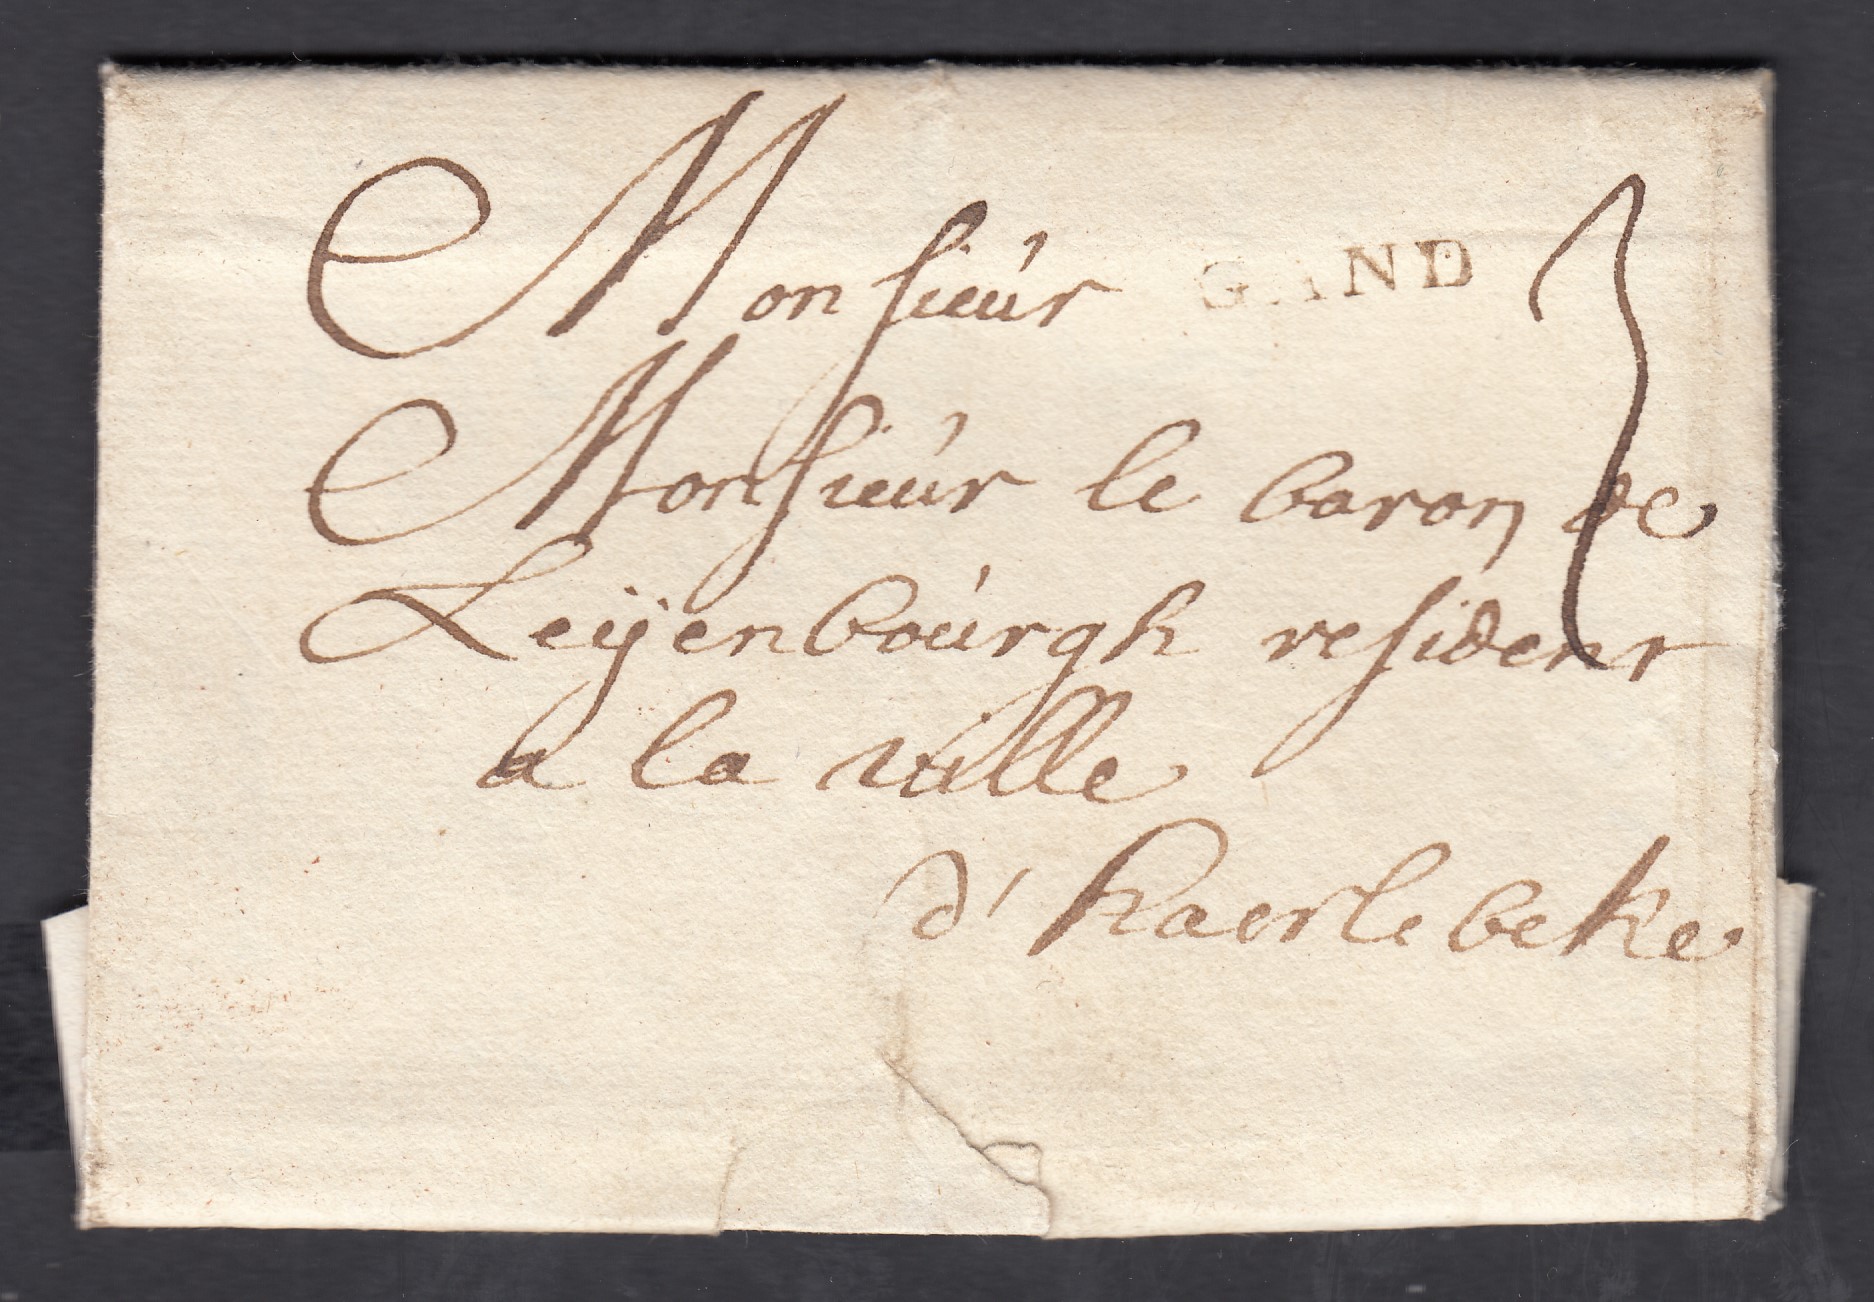 Monsieúr GAND 3
Monsieúr le baron de
Leÿenboúrgh resident
a la ville
d' haerlebeke